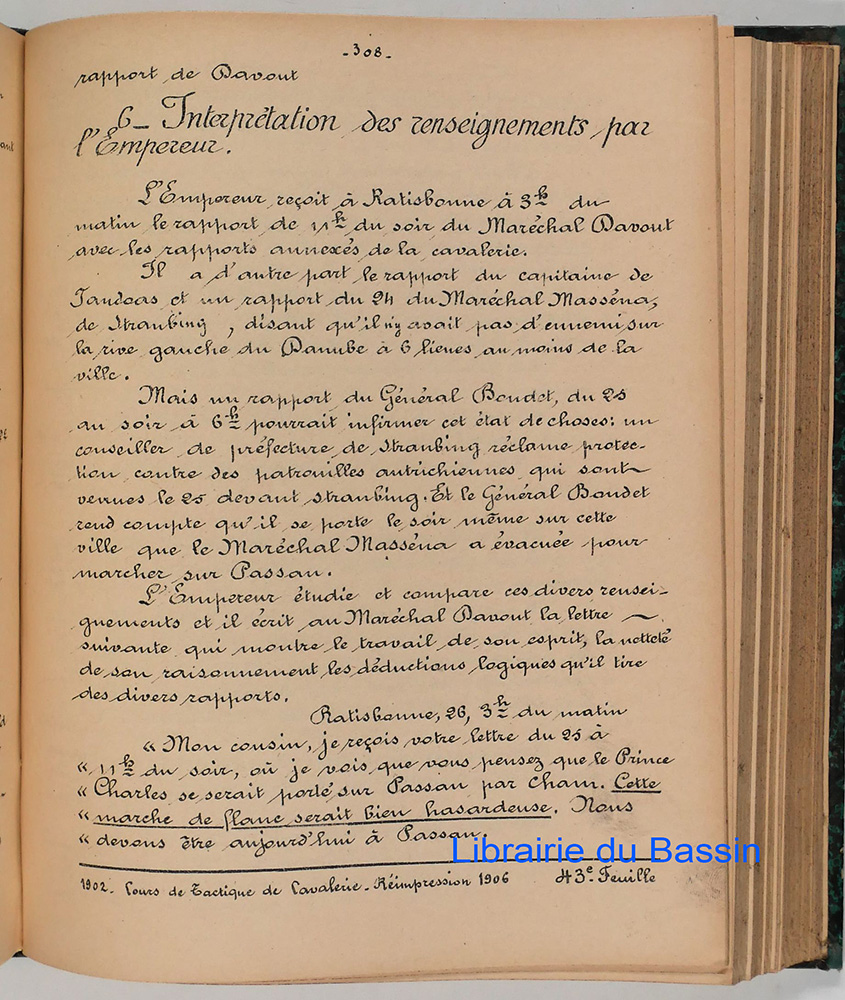 -308-
rapport de Davout
6_ Interprétation des renseignements par
l'Empereur.
L'Empereur reçoit à Ratisbonne à 3h du
matin le rapport de 11h du soir du Maréchal Davout
avec les rapports annexés de la cavalerie.
Il a d'autre part le rapport du capitaine de
Tandoas et un rapport du 24 du Maréchal Masséna,
de Straubing, disant qu'il n'y avait pas d'ennemi sur
la rive gauche du Danube à 6 lieues au moins de la
ville.
Mais un rapport du Général Boudet, du 25
au soir à 6h pourrait infirmer cet état de choses: un
conseiller de préfecture de Straubing réclame protec-
tion contre des patrouilles autrichiennes qui sont
venues le 25 devant Straubing. Et le Général Boudet
rend compte qu'il se porte le soir même sur cette
ville que le Maréchal Masséna a évacuée pour
marcher sur Passau.
L'Empereur étudie et compare ces divers rensei-
gnements et il écrit au Maréchal Davout la lettre
suivante qui montre le travail de son esprit, la netteté
de son raisonnement les déductions logiques qu'il tire
des divers rapports.
Ratisbonne, 26, 3h du matin
« Mon cousin, je reçois votre lettre du 25 à
« 11h du soir, où je vois que vous pensez que le Prince
« Charles se serait porté sur Passau par Cham. Cette
« marche de flanc serait bien hasardeuse. Nous
« devons être aujourd'hui à Passau.
Librairie du Bassin
1902. Cours de Tactique de Cavalerie_Réimpression 1906 43e Feuille